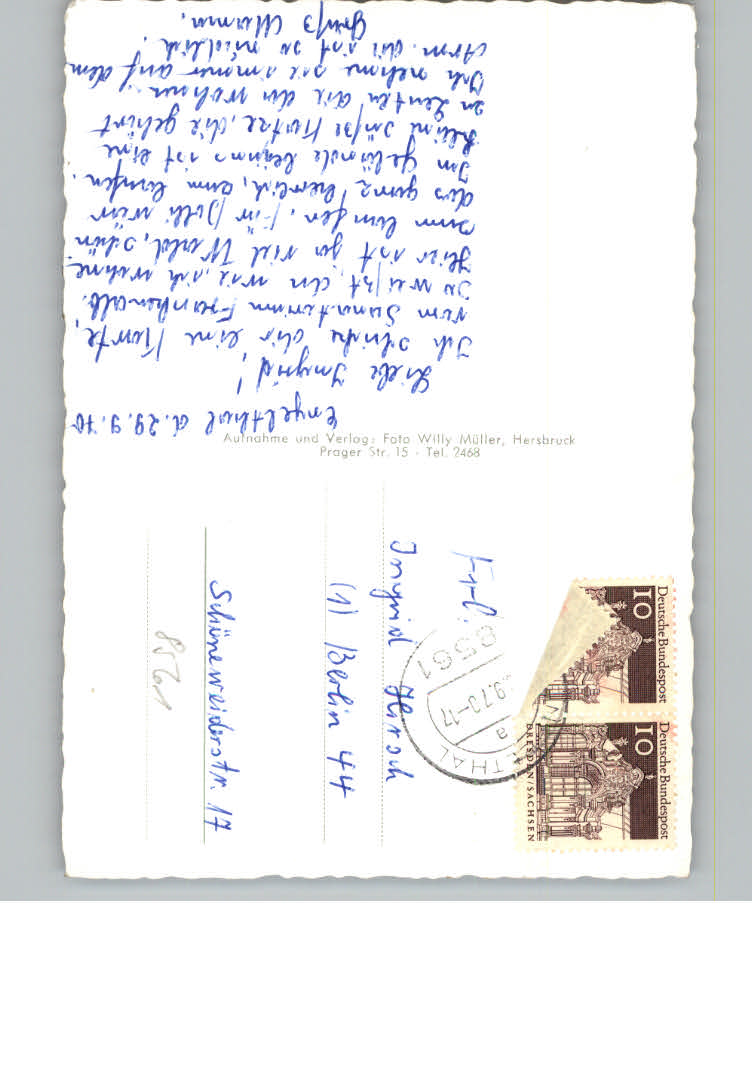 Engelthal d. 29.9.70
Liebe Ingrid!
Ich schicke dir eine Karte,
vom Sanatorium Frankenalb.
So weißt, du wie, ich wohne.
Hier ist ja viel Wald, schön
zum laufen. Für Dolli wär
das ganz herrlich, zum laufen.
Im gelände ist eine
kleine süße Katze, die gehört
zu Leuten die da wohnen.
Ich nehme sie immer auf dem
Arm. die ist so niedlich.
Gruß Mama.
Aufnahme und Verlag: Foto Willy Müller, Hersbruck
Prager Str. 15 - Tel. 2468
Frl.
Ingrid
(1) Berlin 44
Schöneweiderstr. 17
8561
9.70-17
a
THAL
10
Deutsche Bundespost
10
Deutsche Bundespost
DRESDEN/SACHSEN